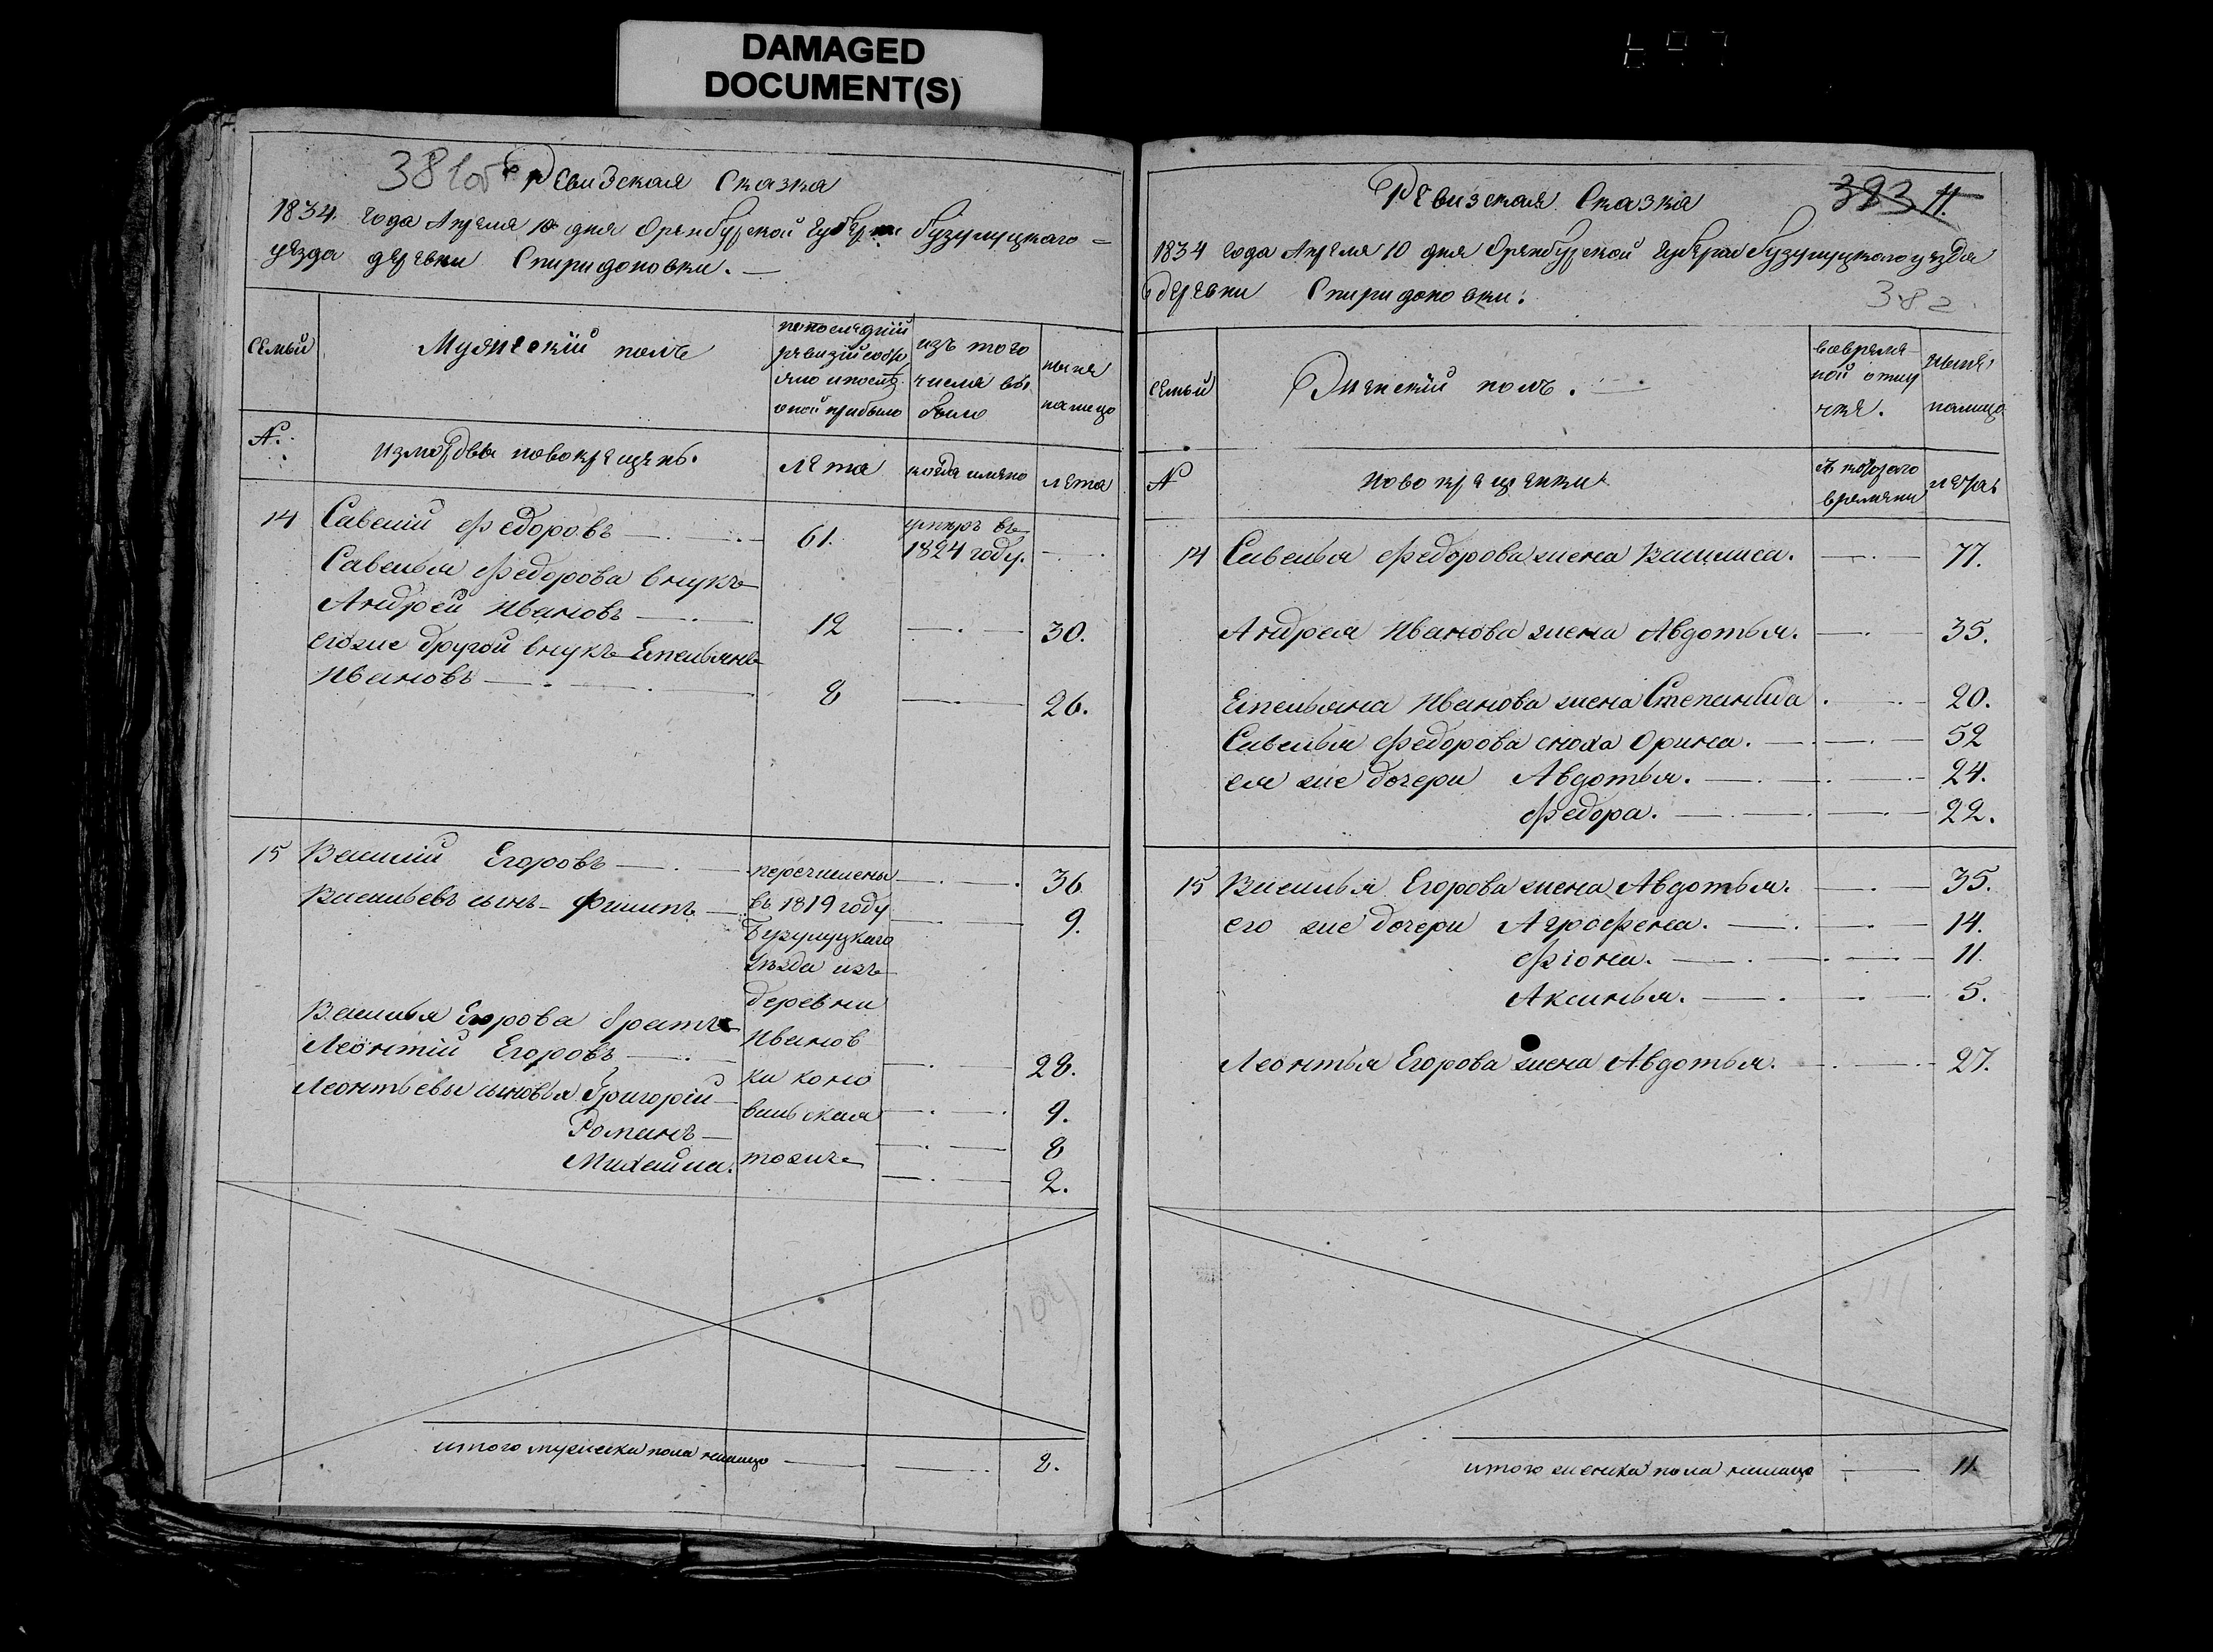 DAMAGED
DOCUMENT(S)
381об
Ревизская Сказка
1834. года Апреля 10 дня Оренбурской Губернии бузулуцкаго
уезда деревни Спиридоновки.
семьи
Мужеский полъ
по последней
ревизии состо
яло и после
оной прибыло
изъ того
числа вы
было
ныне
налицо
№.
измордвы новокрещенъ.
лета
когда имяно
лета
14 Савелий Федоровъ 61. умеръ въ
1824 году.
Савелья Федорова внукъ
Андрей Ивановъ 12 30.
егоже другой внукъ Емельянъ
Ивановъ 8 26.
15 Василий Егоровъ перечислены 36
Васильевъ сынъ Филипъ въ 1819 году 9.
Бузулуцкаго
Уезда изъ
деревни
Василья Егорова братъ Иванов
Леонтий Егоровъ ки коно 28.
Леонтьевы сыновья Григорий 9.
Романъ 8
Михайла. тожъ 2.
итого мужеска пола налицо 8.
Ревизская Сказка
383 11.
1834 года Апреля 10 дня Оренбурской Губернии бузулуцкого уезда
деревни Спиридоновки.
382
семьи
Женский полъ.
вовремян
ной отлу
чке.
ныне
налицо
№
новокрещенки
съ которого
времяни
лета
14 Савелья Федорова жена Василиса. 77.
Андрея Иванова жена Авдотья. 35.
Емельяна Иванова жена Степанида 20.
Савелья Федорова сноха Орина. 52
ея же дочери Авдотья. 24.
Федора. 22.
15 Василья Егорова жена Авдотья. 35.
его же дочери Агрофена. 14.
Фіона. 11.
Аксинья. 5.
Леонтья Егорова жена Авдотья. 27.
итого женска пола налицо 11